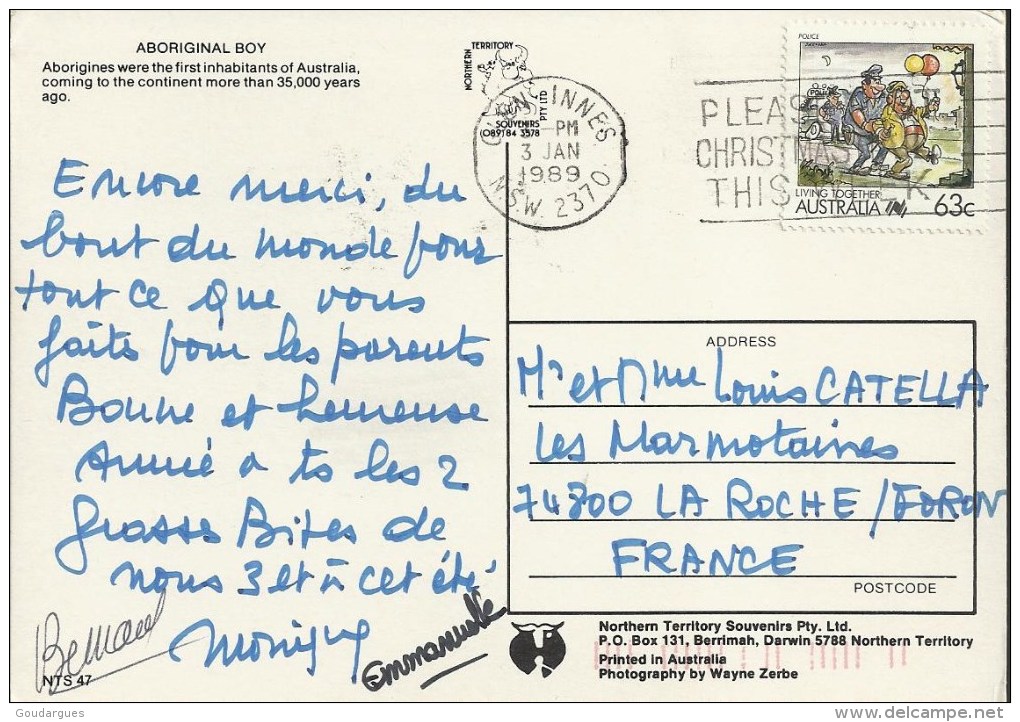 ABORIGINAL BOY
Aborigines were the first inhabitants of Australia,
coming to the continent more than 35,000 years
ago.
NORTHERN TERRITORY
SOUVENIRS PTY LTD
(089) 84 3578
GLEN INNES
-PM
3 JAN
1989
N.S.W. 2370
PLEAS
CHRISTMAS
THIS
POLICE
LIVING TOGETHER
AUSTRALIA 63c
Encore merci, du
bout du monde pour
tout ce que vous
faits pour les parents
Bonne et heureuse
Année a ts les 2
Grosses Bises de
nous 3 et à cet été
Bernard
Monique
Emmanuelle
NTS 47
ADDRESS
Mr et Mme Louis CATELLA
Les Marmotaines
74800 LA ROCHE / FORON
FRANCE
POSTCODE
Northern Territory Souvenirs Pty. Ltd.
P.O. Box 131, Berrimah, Darwin 5788 Northern Territory
Printed in Australia
Photography by Wayne Zerbe
© Goudargues
www.delcampe.net